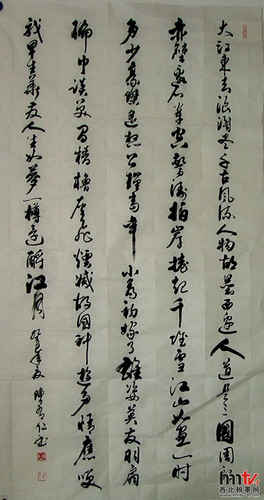 大江东去浪淘尽千古风流人物故垒西边人道是三国周郎
赤壁乱石穿空惊涛拍岸捲起千堆雪江山如画一时
多少豪杰遥想公瑾当年小乔初嫁了雄姿英发羽扇
纶巾谈笑间樯橹灰飞烟灭故国神游多情应笑
我早生华发人生如梦一樽还酹江月